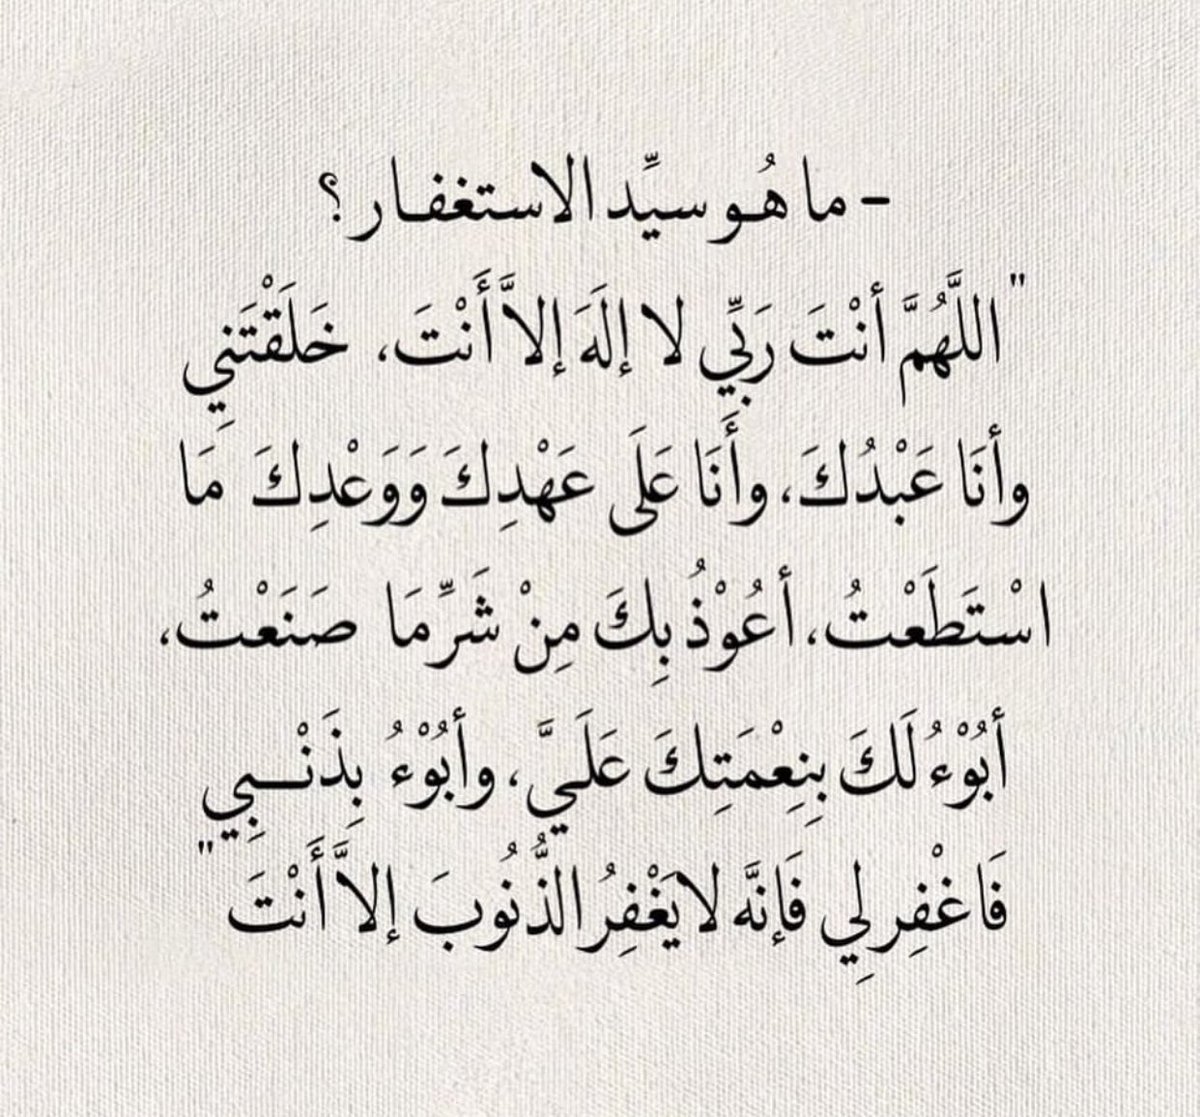 - ما هُو سيِّد الاستغفار؟
"اللَّهُمَّ أنْتَ رَبِّي لا إلَهَ إلاَّ أَنْتَ، خَلَقْتَنِي
وأنَا عَبْدُكَ، وأَنَا عَلَى عَهْدِكَ وَوَعْدِكَ مَا
اسْتَطَعْتُ، أعُوْذُ بِكَ مِنْ شَرِّ مَا صَنَعْتُ،
أبُوْءُ لَكَ بِنِعْمَتِكَ عَلَيَّ، وأبُوْءُ بِذَنْبِي
فَاغْفِر لِي فَإنَّه لا يَغْفِرُ الذُّنُوبَ إلاَّ أَنْتَ"